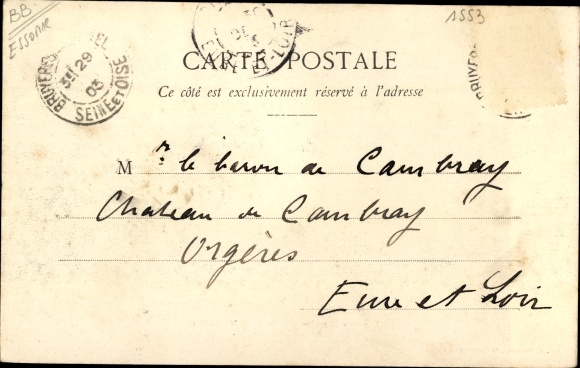 BB
Essonne
1553
BRUYERES
EL
29
03
SEINE ET OISE
ET-LOIR
CARTE POSTALE
Ce côté est exclusivement réservé à l'adresse
M r. le baron de Cambray
Chateau de Cambray
Orgères
Eure et Loir